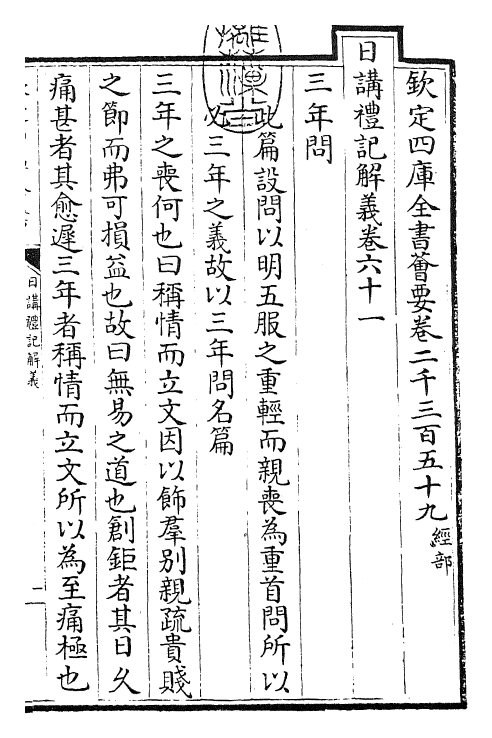 欽定四庫全書薈要卷二千三百五十九 經部
日講禮記解義卷六十一
三年問
此篇設問以明五服之重輕而親喪為重首問所以
必三年之義故以三年問名篇
三年之喪何也曰稱情而立文因以飾羣别親疏貴賤
之節而弗可損益也故曰無易之道也創鉅者其日久
痛甚者其愈遲三年者稱情而立文所以為至痛極也
日講禮記解義
一